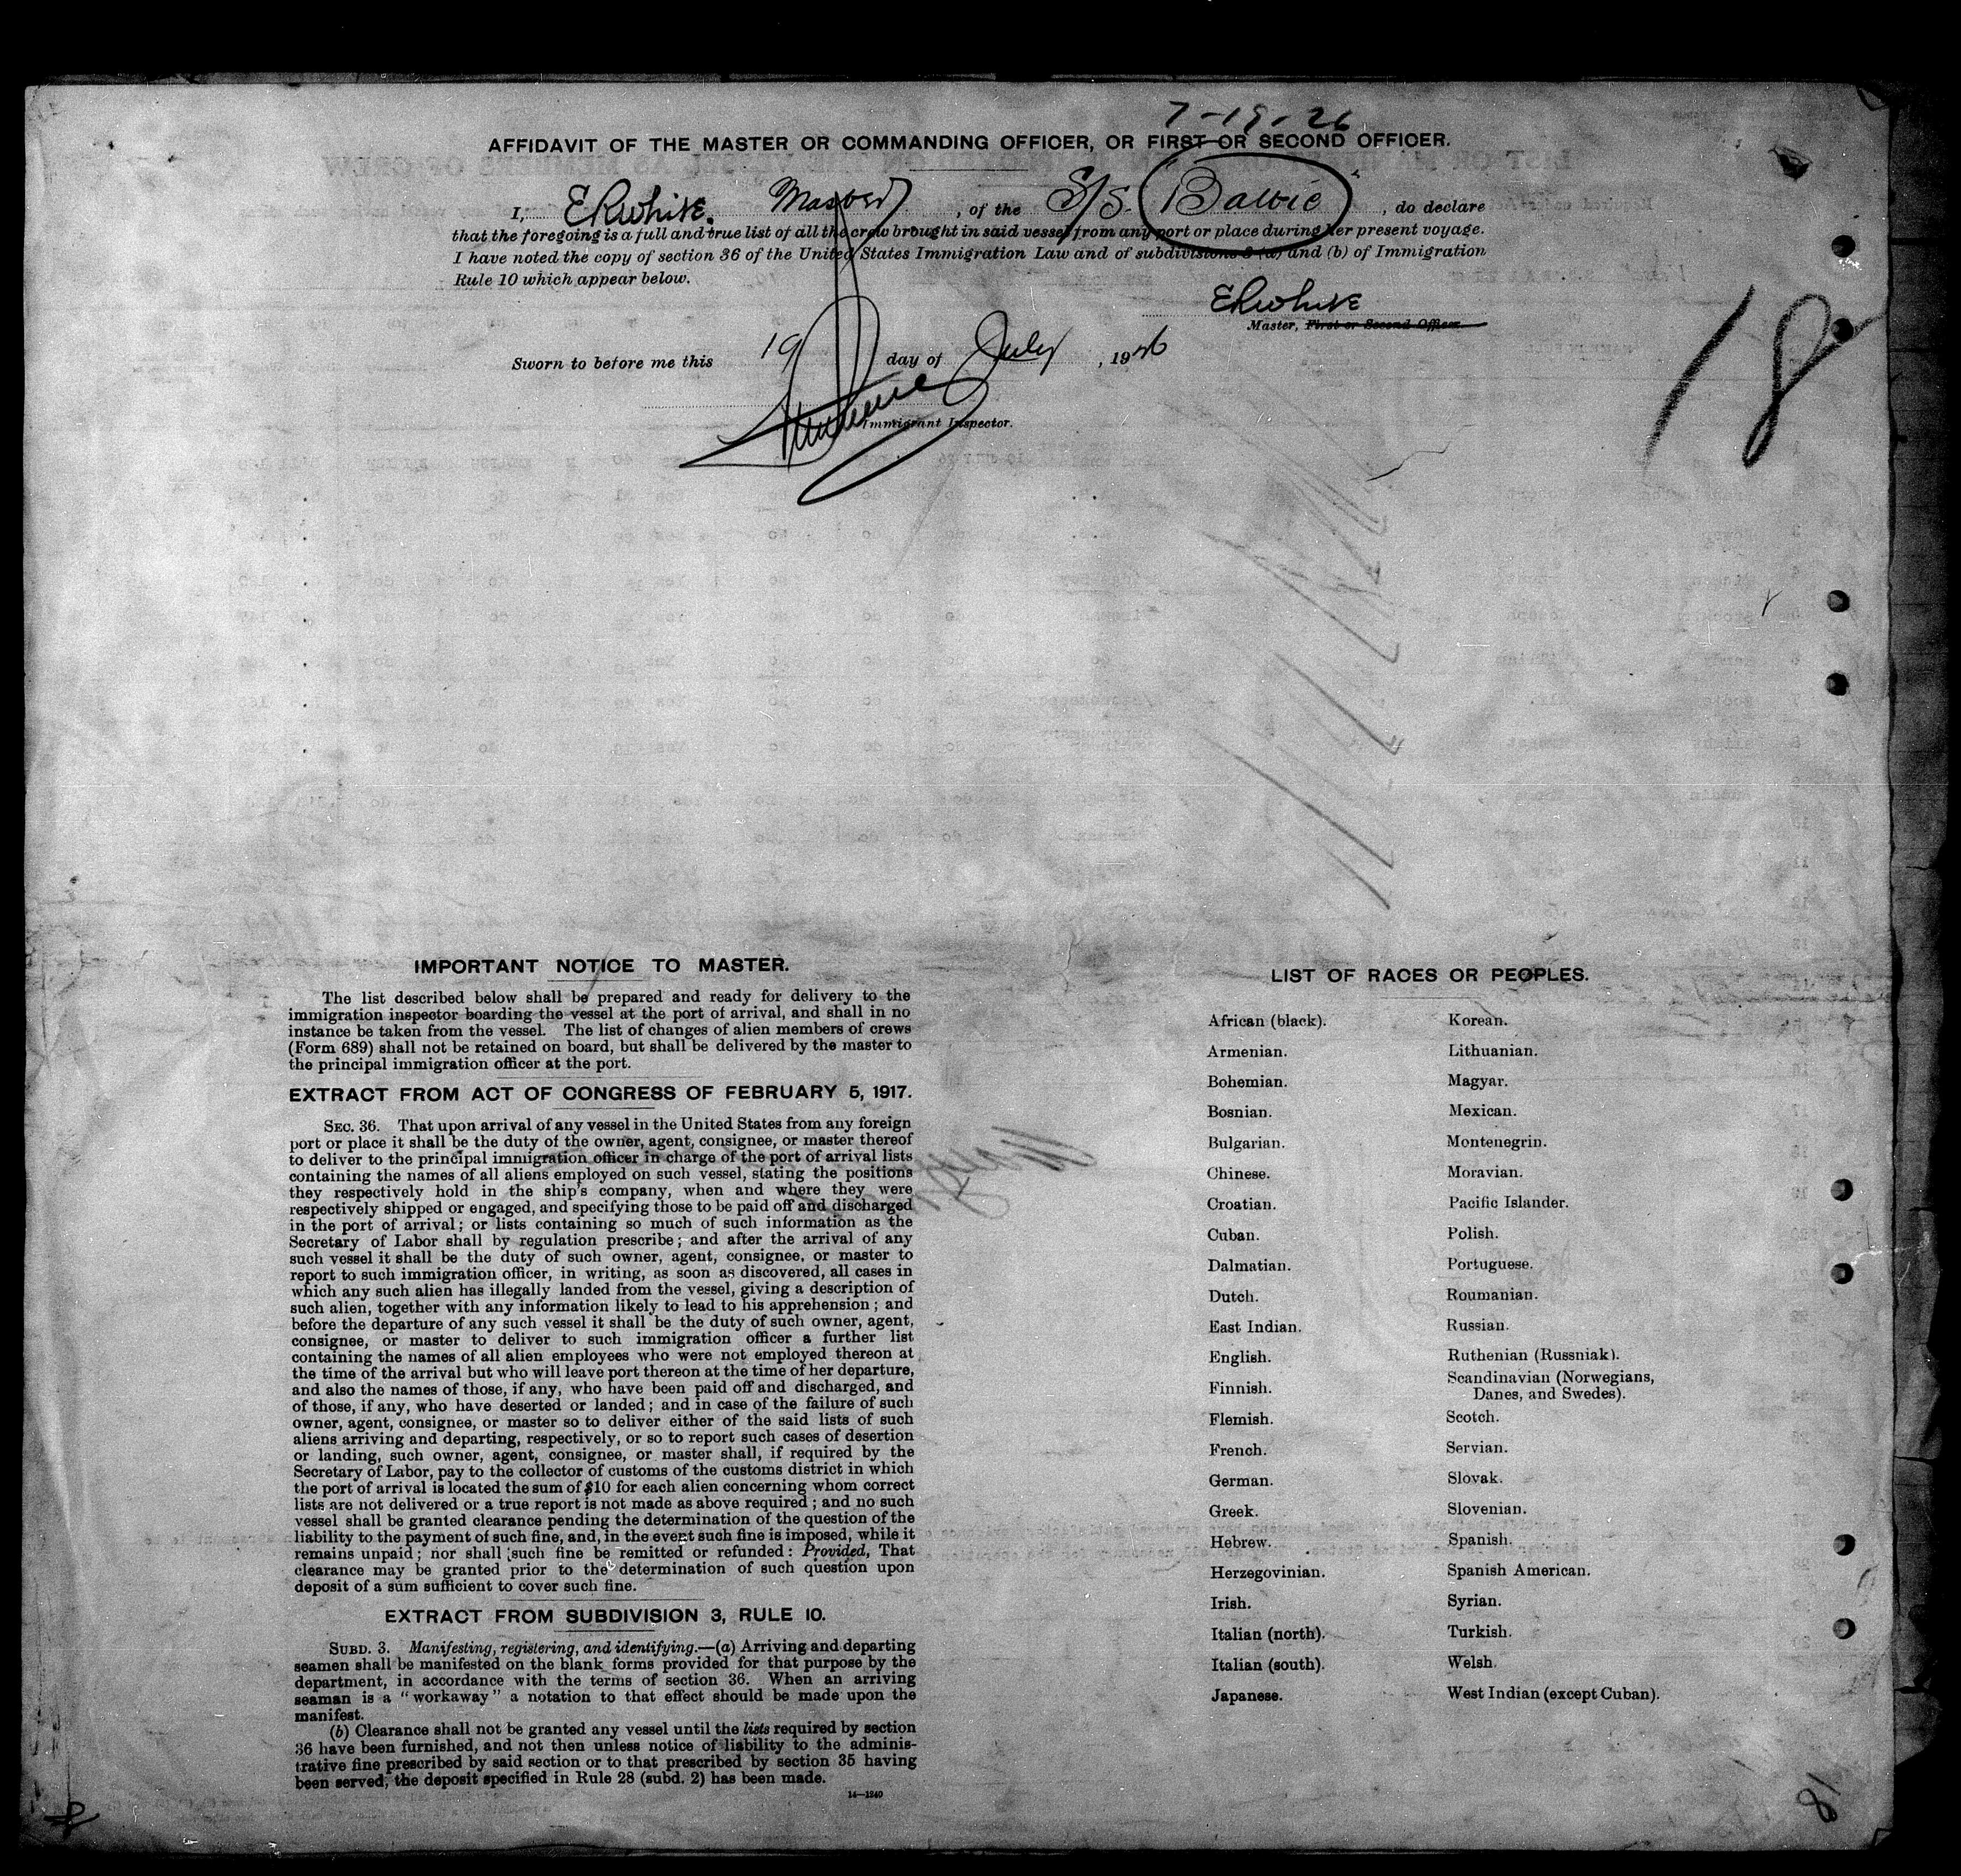 7-19-26
AFFIDAVIT OF THE MASTER OR COMMANDING OFFICER, OR FIRST OR SECOND OFFICER.
I, ERWhite. Master, of the S/S. Baltic, do declare
that the foregoing is a full and true list of all the crew brought in said vessel from any port or place during her present voyage.
I have noted the copy of section 36 of the United States Immigration Law and of subdivisions 3 (a) and (b) of Immigration
Rule 10 which appear below.
ERWhite
Master, First or Second Officer.
18
Sworn to before me this 19 day of July, 1926
Immigrant Inspector.
IMPORTANT NOTICE TO MASTER.
The list described below shall be prepared and ready for delivery to the
immigration inspector boarding the vessel at the port of arrival, and shall in no
instance be taken from the vessel. The list of changes of alien members of crews
(Form 689) shall not be retained on board, but shall be delivered by the master to
the principal immigration officer at the port.
EXTRACT FROM ACT OF CONGRESS OF FEBRUARY 5, 1917.
SEC. 36. That upon arrival of any vessel in the United States from any foreign
port or place it shall be the duty of the owner, agent, consignee, or master thereof
to deliver to the principal immigration officer in charge of the port of arrival lists
containing the names of all aliens employed on such vessel, stating the positions
they respectively hold in the ship's company, when and where they were
respectively shipped or engaged, and specifying those to be paid off and discharged
in the port of arrival; or lists containing so much of such information as the
Secretary of Labor shall by regulation prescribe; and after the arrival of any
such vessel it shall be the duty of such owner, agent, consignee, or master to
report to such immigration officer, in writing, as soon as discovered, all cases in
which any such alien has illegally landed from the vessel, giving a description of
such alien, together with any information likely to lead to his apprehension; and
before the departure of any such vessel it shall be the duty of such owner, agent,
consignee, or master to deliver to such immigration officer a further list
containing the names of all alien employees who were not employed thereon at
the time of the arrival but who will leave port thereon at the time of her departure,
and also the names of those, if any, who have been paid off and discharged, and
of those, if any, who have deserted or landed; and in case of the failure of such
owner, agent, consignee, or master so to deliver either of the said lists of such
aliens arriving and departing, respectively, or so to report such cases of desertion
or landing, such owner, agent, consignee, or master shall, if required by the
Secretary of Labor, pay to the collector of customs of the customs district in which
the port of arrival is located the sum of $10 for each alien concerning whom correct
lists are not delivered or a true report is not made as above required; and no such
vessel shall be granted clearance pending the determination of the question of the
liability to the payment of such fine, and, in the event such fine is imposed, while it
remains unpaid; nor shall such fine be remitted or refunded: Provided, That
clearance may be granted prior to the determination of such question upon
deposit of a sum sufficient to cover such fine.
EXTRACT FROM SUBDIVISION 3, RULE 10.
SUBD. 3. Manifesting, registering, and identifying.—(a) Arriving and departing
seamen shall be manifested on the blank forms provided for that purpose by the
department, in accordance with the terms of section 36. When an arriving
seaman is a "workaway" a notation to that effect should be made upon the
manifest.
(b) Clearance shall not be granted any vessel until the lists required by section
36 have been furnished, and not then unless notice of liability to the adminis-
trative fine prescribed by said section or to that prescribed by section 35 having
been served, the deposit specified in Rule 28 (subd. 2) has been made.
14—1240
LIST OF RACES OR PEOPLES.
African (black).
Armenian.
Bohemian.
Bosnian.
Bulgarian.
Chinese.
Croatian.
Cuban.
Dalmatian.
Dutch.
East Indian.
English.
Finnish.
Flemish.
French.
German.
Greek.
Hebrew.
Herzegovinian.
Irish.
Italian (north).
Italian (south).
Japanese.
Korean.
Lithuanian.
Magyar.
Mexican.
Montenegrin.
Moravian.
Pacific Islander.
Polish.
Portuguese.
Roumanian.
Russian.
Ruthenian (Russniak).
Scandinavian (Norwegians,
Danes, and Swedes).
Scotch.
Servian.
Slovak.
Slovenian.
Spanish.
Spanish American.
Syrian.
Turkish.
Welsh.
West Indian (except Cuban).
18